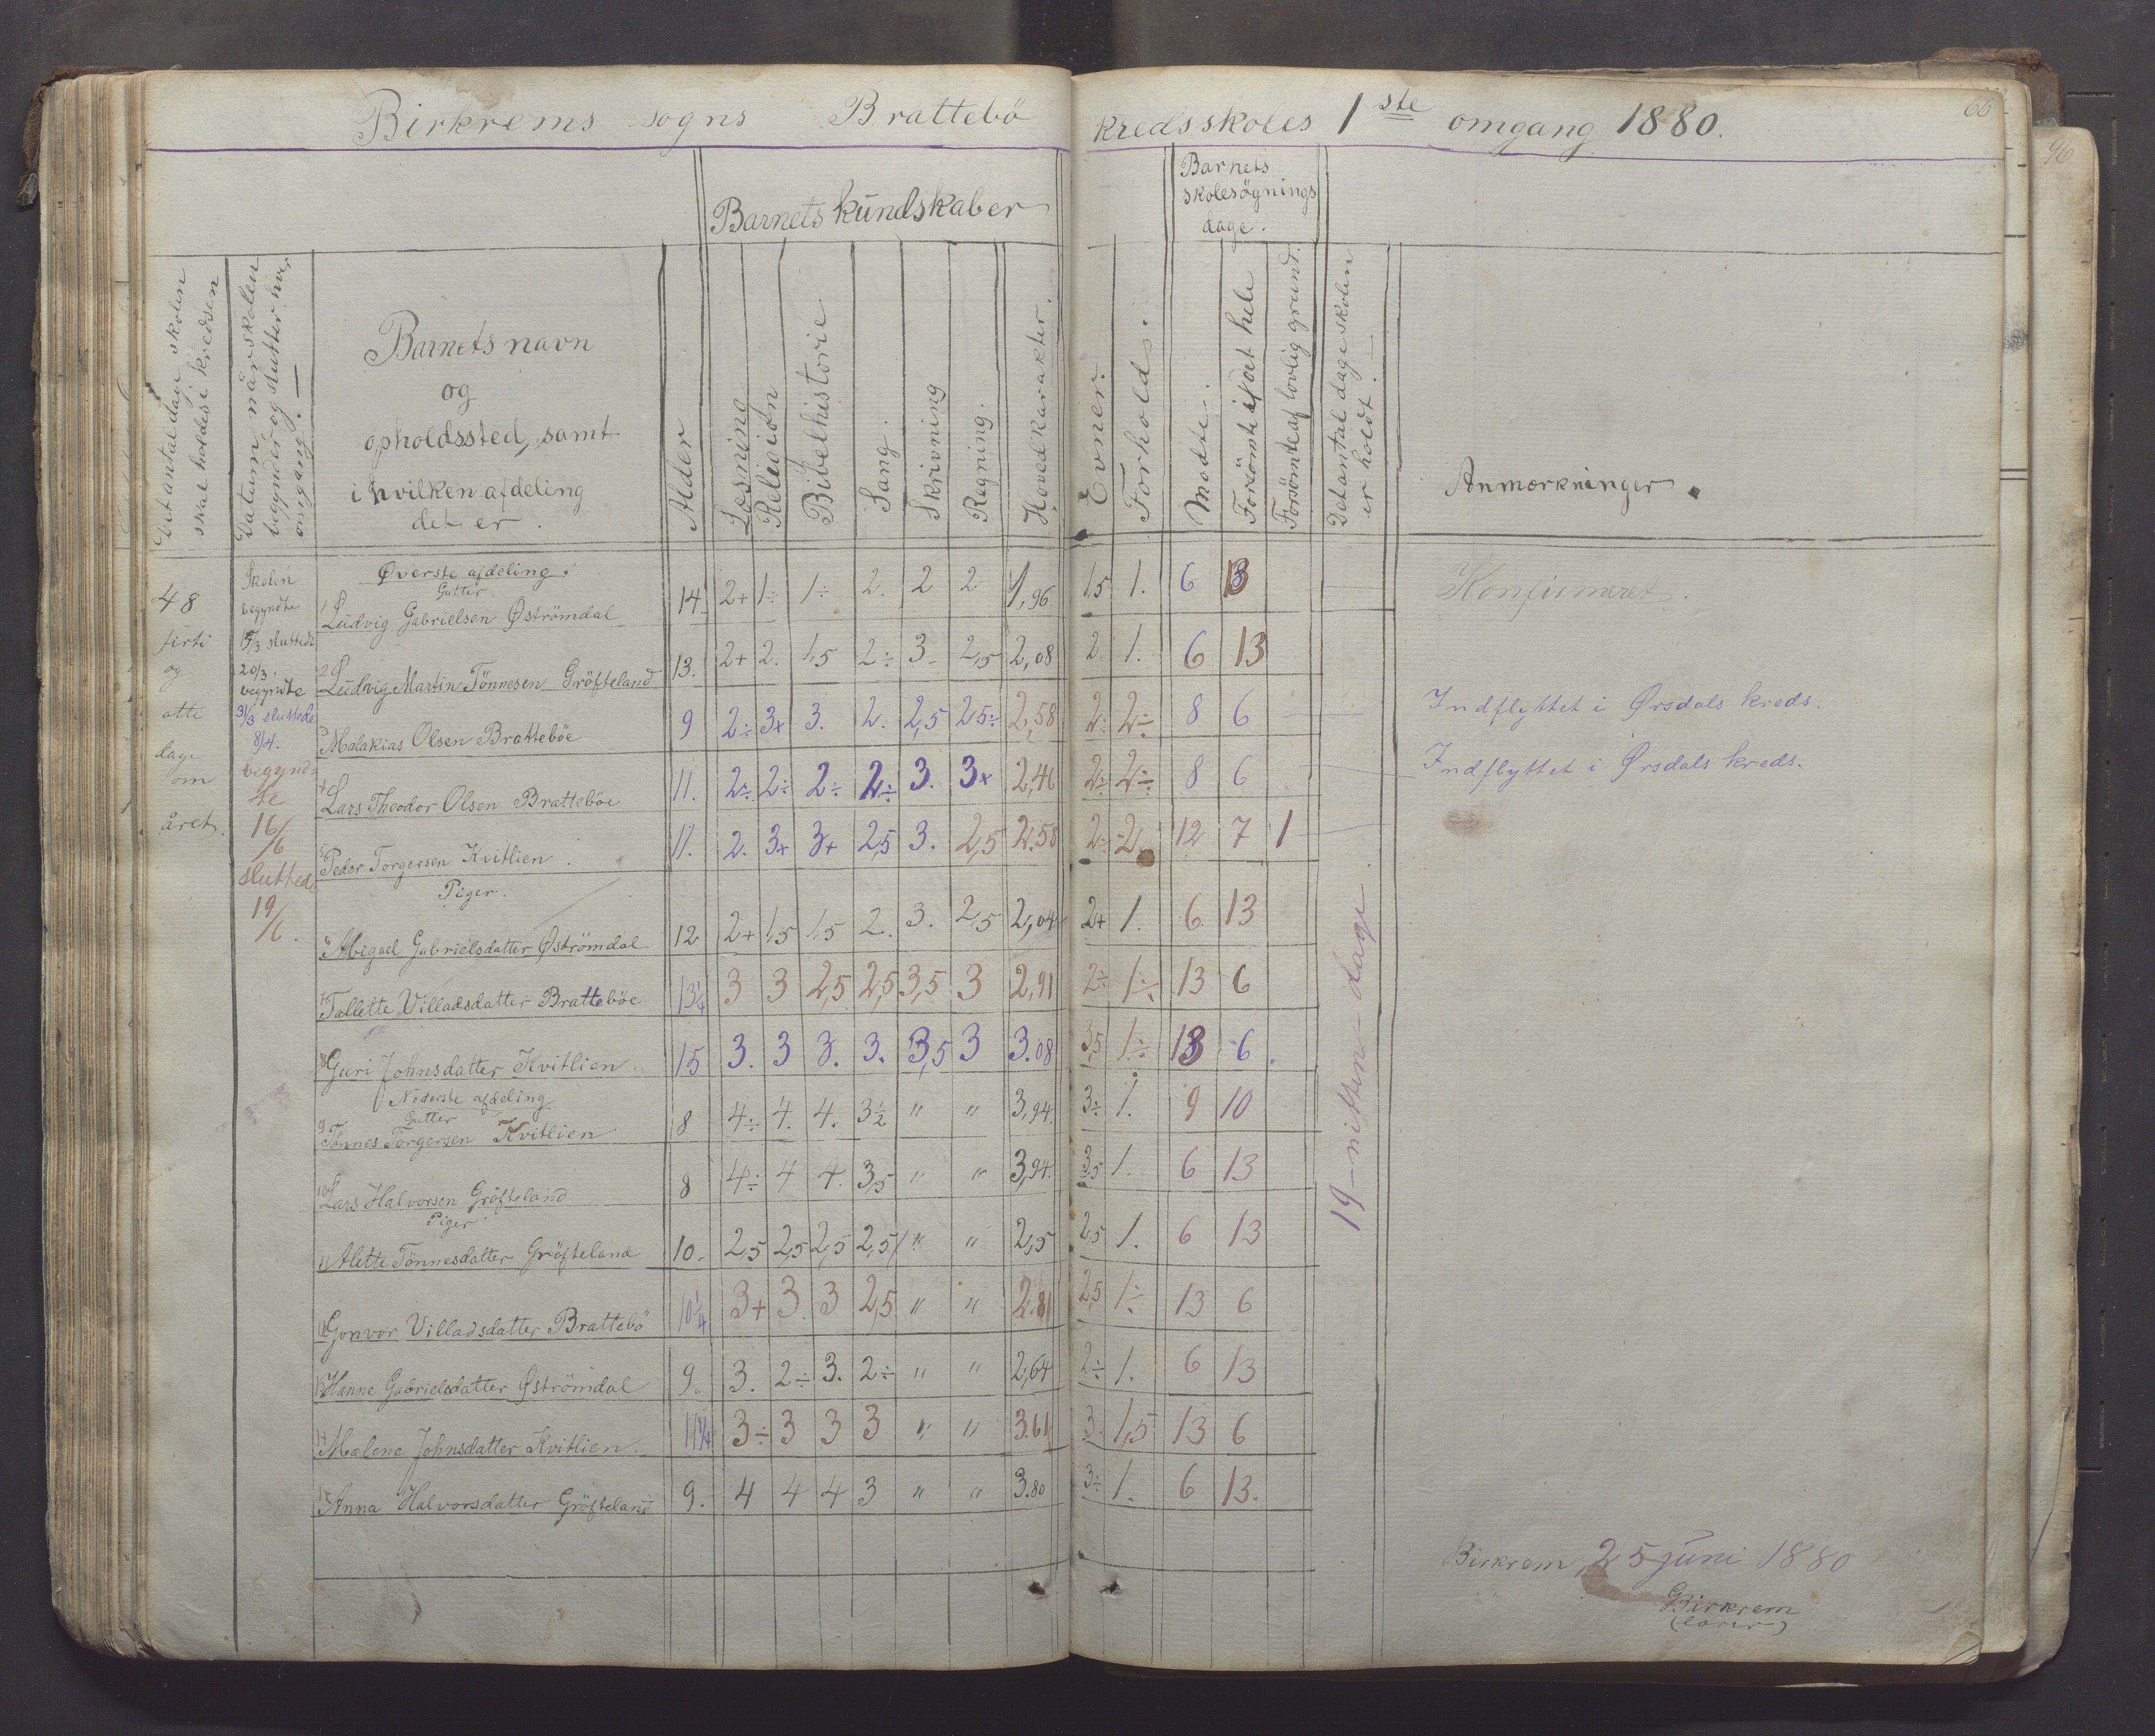 Birkrems sogns Brattebö kredsskoles 1ste omgang 1880.
66
96
Barnets kundskaber
Barnets
skolesögnings
dage.
Det antal dage skolen
skal holdes i kredsen
Datum når skolen
begynder og slutter hver
omgang. —
Barnets navn
og
opholdssted, samt
i hvilken afdeling
det er.
Alder
Læsning
Religion
Bibelhistorie
Sang.
Skrivning
Regning.
Hovedkarakter.
Evner.
Forhold.
Mødte.
Forsömte i det hele
Forsömte af lovlig grund.
Det antal dage skolen
er holdt. —
Anmærkninger.
48
firti
og
otte
dage
om
året.
Skolen
begyndte
15/3 sluttede
20/3.
begyndte
31/3 sluttede
8/4.
begynd=
te
16/6
sluttede
19/6.
Øverste afdeling.
Gutter.
1 Ludvig Gabrielsen Øströmdal 14 2+ 1÷ 1÷ 2. 2 2 1,96 1,5 1. 6 13 Konfirmeret.
2 Ludvig Martin Tönnesen Gröfteland 13. 2+ 2. 1,5 2÷ 3- 2,5 2,08 2. 1. 6 13
3 Malakias Olsen Bratteböe 9 2÷ 3+ 3. 2. 2,5 2,5÷ 2,58 2÷ 2÷ 8 6 Indflyttet i Ørsdals kreds.
4 Lars Theodor Olsen Bratteböe 11. 2÷ 2÷ 2÷ 2÷ 3. 3+ 2,46 2÷ 2÷ 8 6 Indflyttet i Ørsdals kreds.
5 Peder Torgersen Kvitlien. 11. 2. 3+ 3+ 2,5 3. 2,5 2.58 2÷ 2. 12 7 1
Piger.
6 Abigael Gabrielsdatter Øströmdal 12 2+ 1,5 1,5 2. 3. 2,5 2,04 2+ 1. 6. 13
7 Tallette Villadsdatter Bratteböe 13¼ 3 3 2,5 2,5 3,5 3 2,91 2÷ 1÷ 13 6
8 Guri Johnsdatter Kvitlien. 15 3. 3 3. 3. 3,5 3 3.08 3,5 1÷ 13 6.
Nederste afdeling
Gutter
9 Tönnes Torgersen Kvitlien 8 4÷ 4. 4. 3½ " " 3,94. 3÷ 1. 9 10
10 Lars Halvorsen Gröfteland 8 4÷ 4 4. 3,5 " " 3,94. 3,5 1. 6 13
Piger
11 Alette Tönnesdatter Gröfteland 10. 2,5 2,5 2,5 2,5 " " 2,5 2,5 1. 6 13
12 Gonvor Villadsdatter Brattebö 10¼ 3+ 3. 3 2,5 " " 2.81 2,5 1÷ 13 6
13 Hanne Gabrielsdatter Øströmdal 9. 3. 2÷ 3. 2÷ " " 2,64 2÷ 1. 6 13
14 Malene Johnsdatter Kvitlien. 11¼ 3÷ 3 3 3 " " 3.61 3. 1,5 13 6
15 Anna Halvorsdatter Gröfteland 9. 4 4 4 3 " " 3.80 3÷ 1. 6 13.
19 – nitten – dage.
Birkrem, 25 juni 1880
G Birkrem
(lærer)